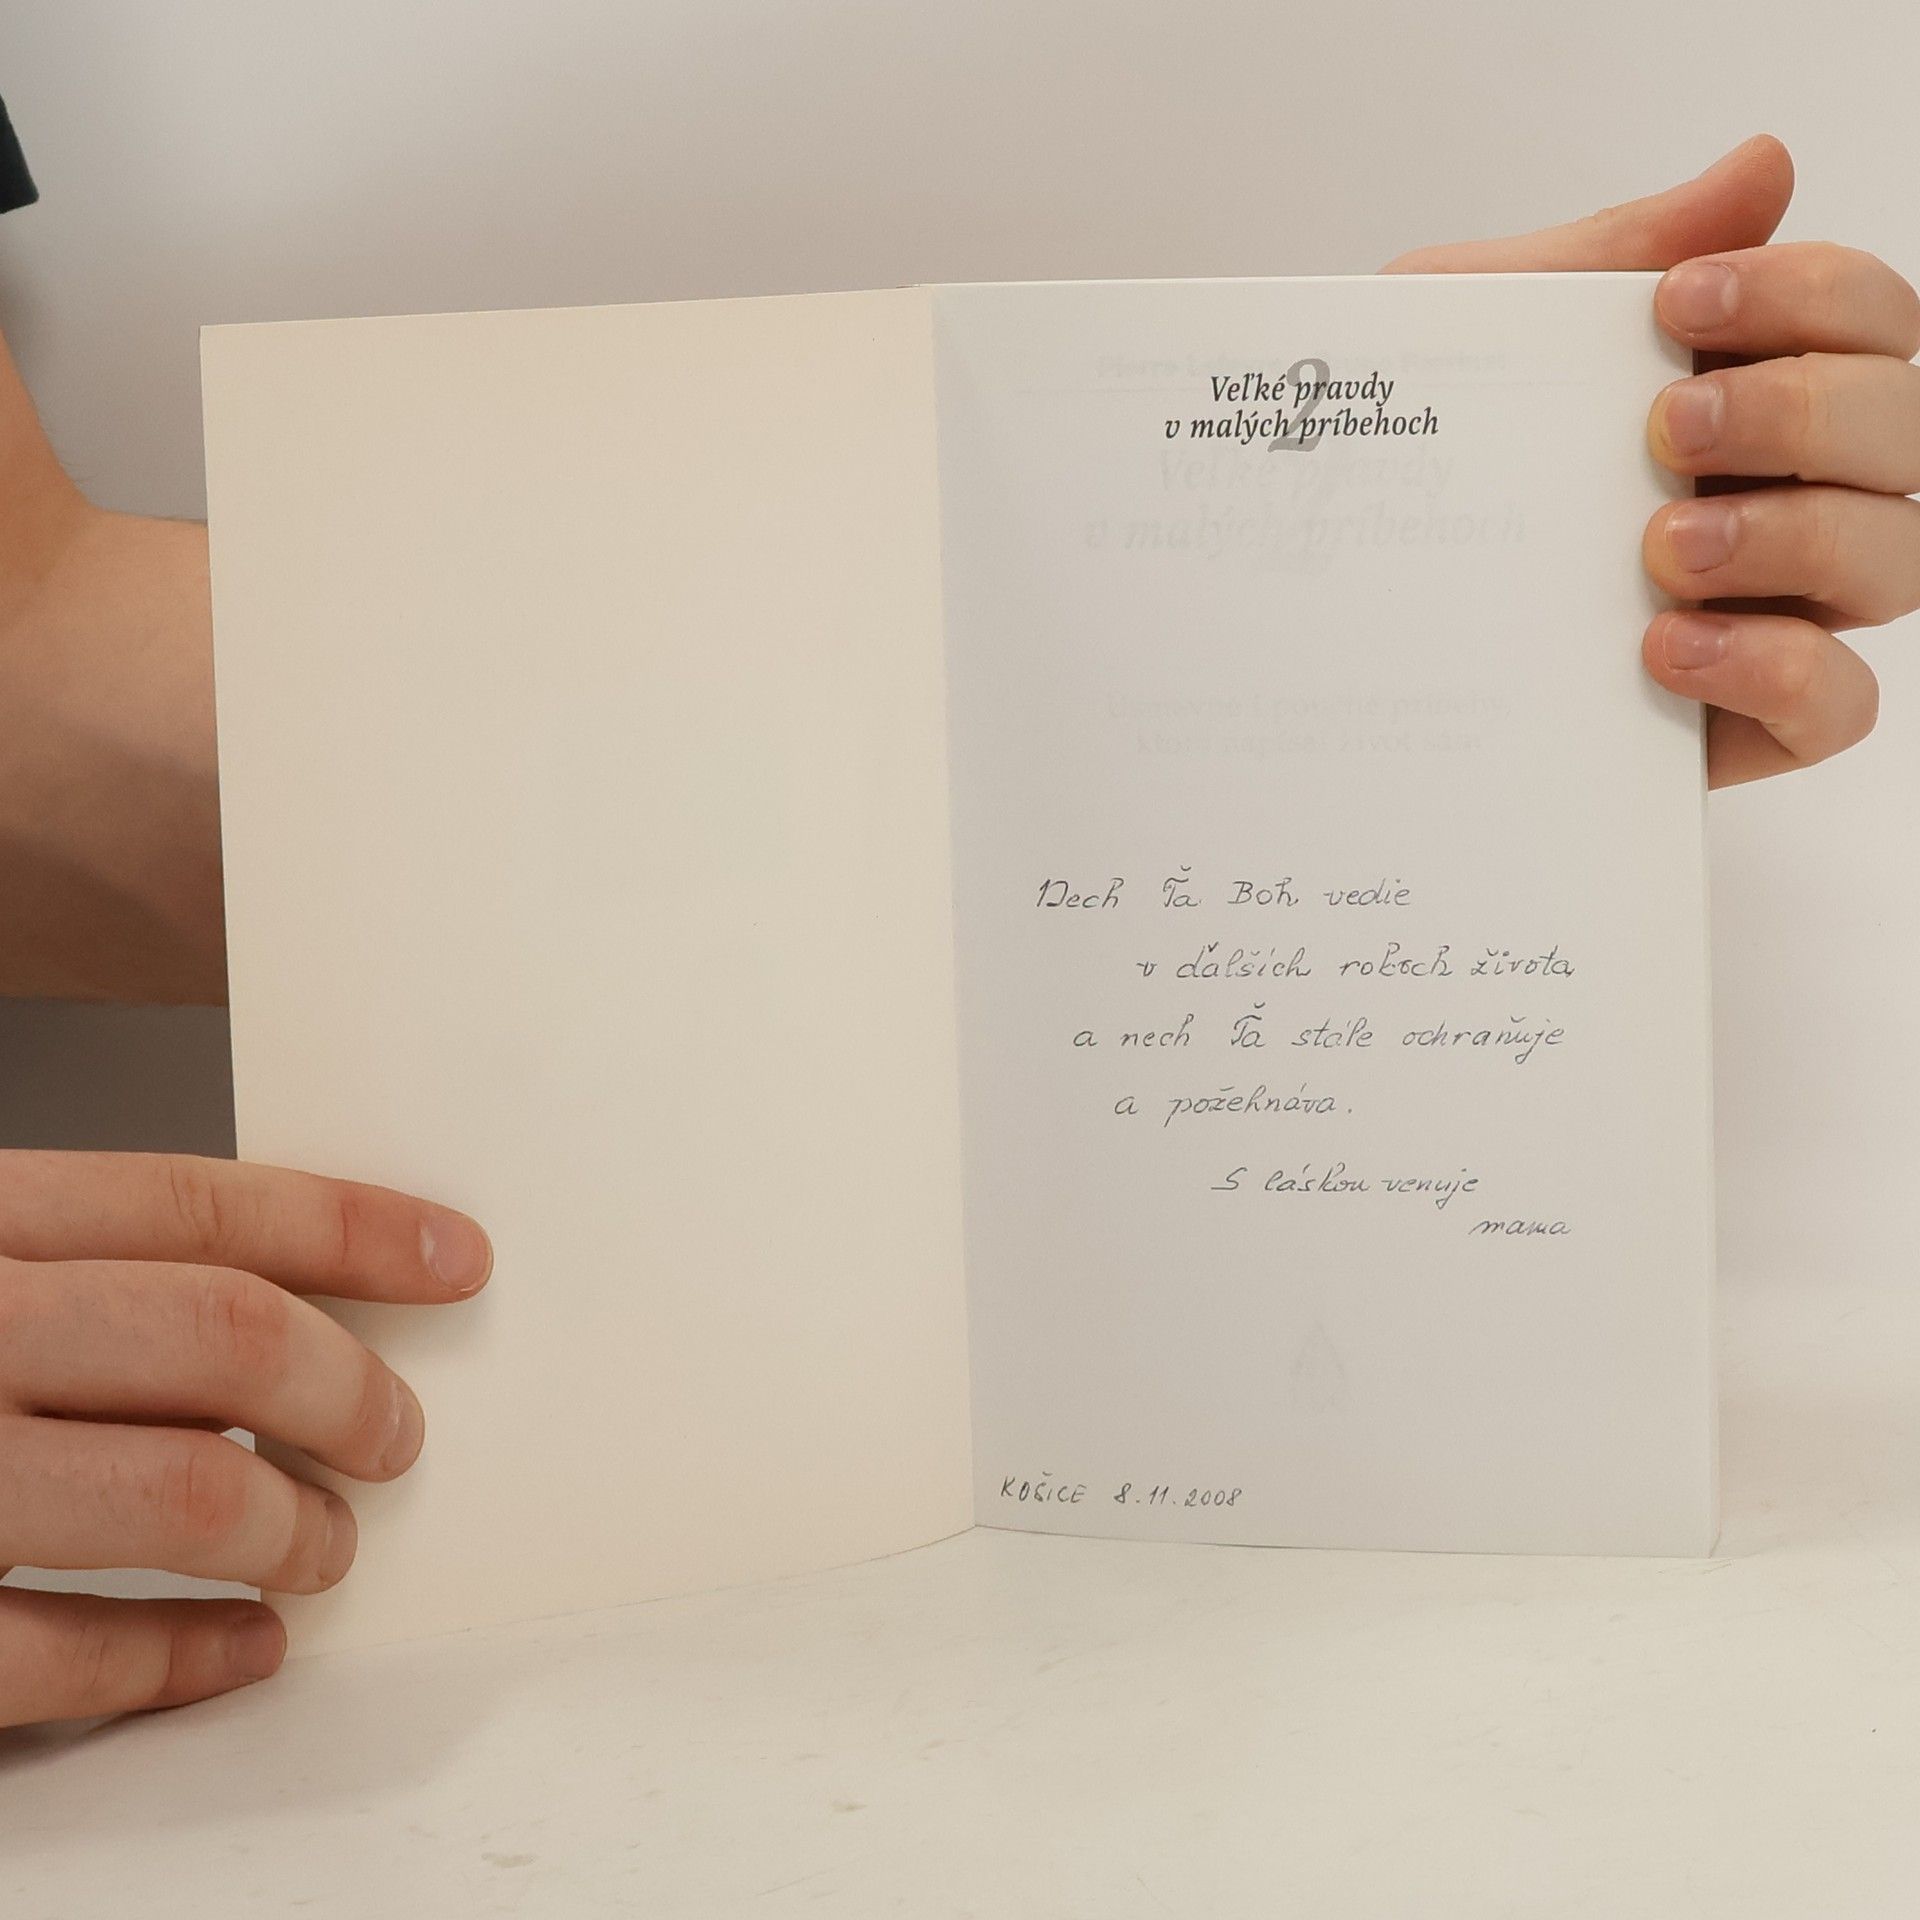 2
Veľké pravdy
v malých príbehoch
Veľké pravdy
v malých príbehoch
Nech Ťa Boh vedie
v ďalších rokoch života
a nech Ťa stále ochraňuje
a požehnáva.
S láskou venuje
mama
KOŠICE 8.11.2008